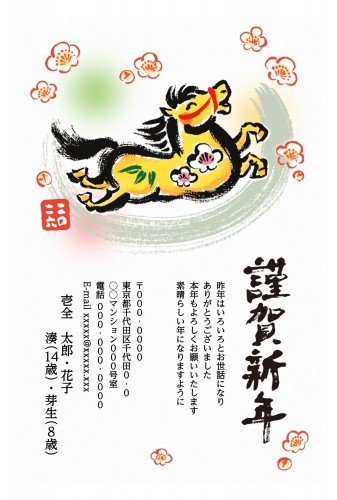 謹賀新年
昨年はいろいろとお世話になり
ありがとうございました
本年もよろしくお願いいたします
素晴らしい年になりますように
〒000-0000
東京都千代田区千代田0-0
〇〇マンション0000号室
電話 000-000-0000
E-mail xxxxx@xxxxx.xxx
壱全 太郎・花子
湊(14歳)・芽生(8歳)